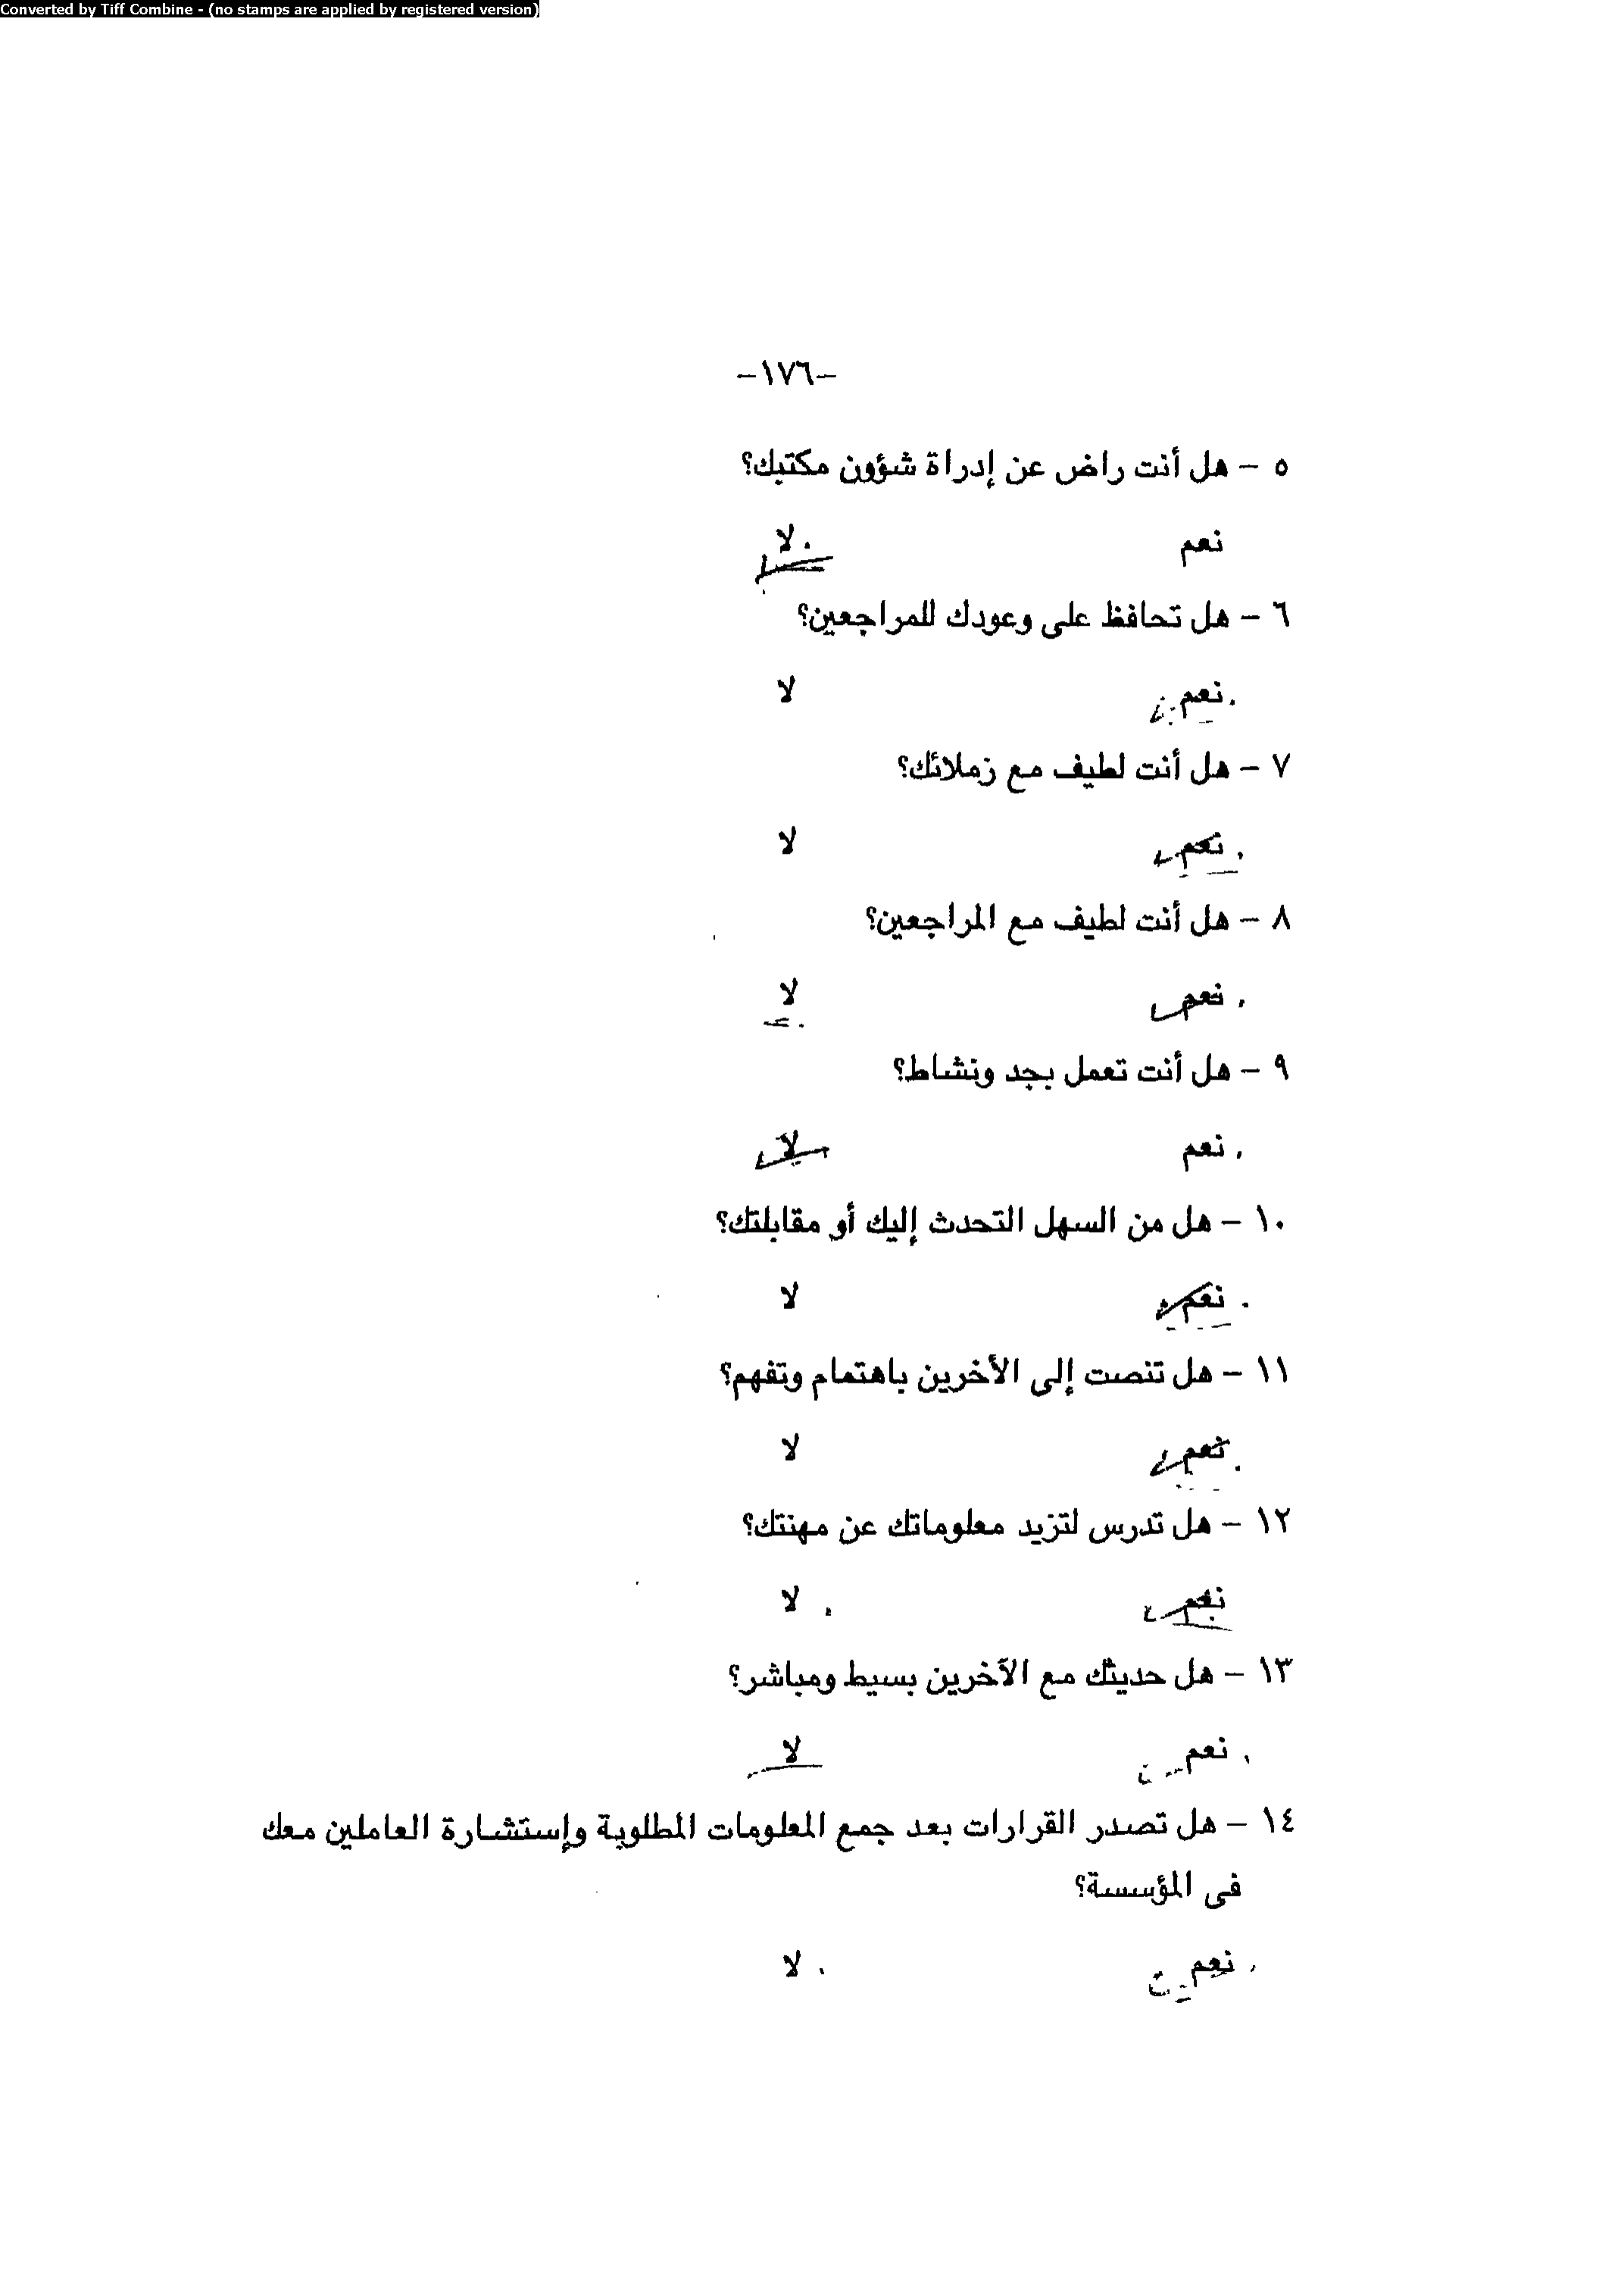 Converted by Tiff Combine - (no stamps are applied by registered version)
-١٧٦-
٥ - هل أنت راض عن إدراة شؤون مكتبك؟
نعم لا
٦ - هل تحافظ على وعودك للمراجعين؟
نعم لا
٧ - هل أنت لطيف مع زملائك؟
نعم لا
٨ - هل أنت لطيف مع المراجعين؟
نعم لا
٩ - هل أنت تعمل بجد ونشاط؟
نعم لا
١٠ - هل من السهل التحدث إليك أو مقابلتك؟
نعم لا
١١ - هل تنصت إلى الأخرين باهتمام وتفهم؟
نعم لا
١٢ - هل تدرس لتزيد معلوماتك عن مهنتك؟
نعم لا
١٣ - هل حديثك مع الآخرين بسيط ومباشر؟
نعم لا
١٤ - هل تصدر القرارات بعد جمع المعلومات المطلوبة وإستشارة العاملين معك
فى المؤسسة؟
نعم لا